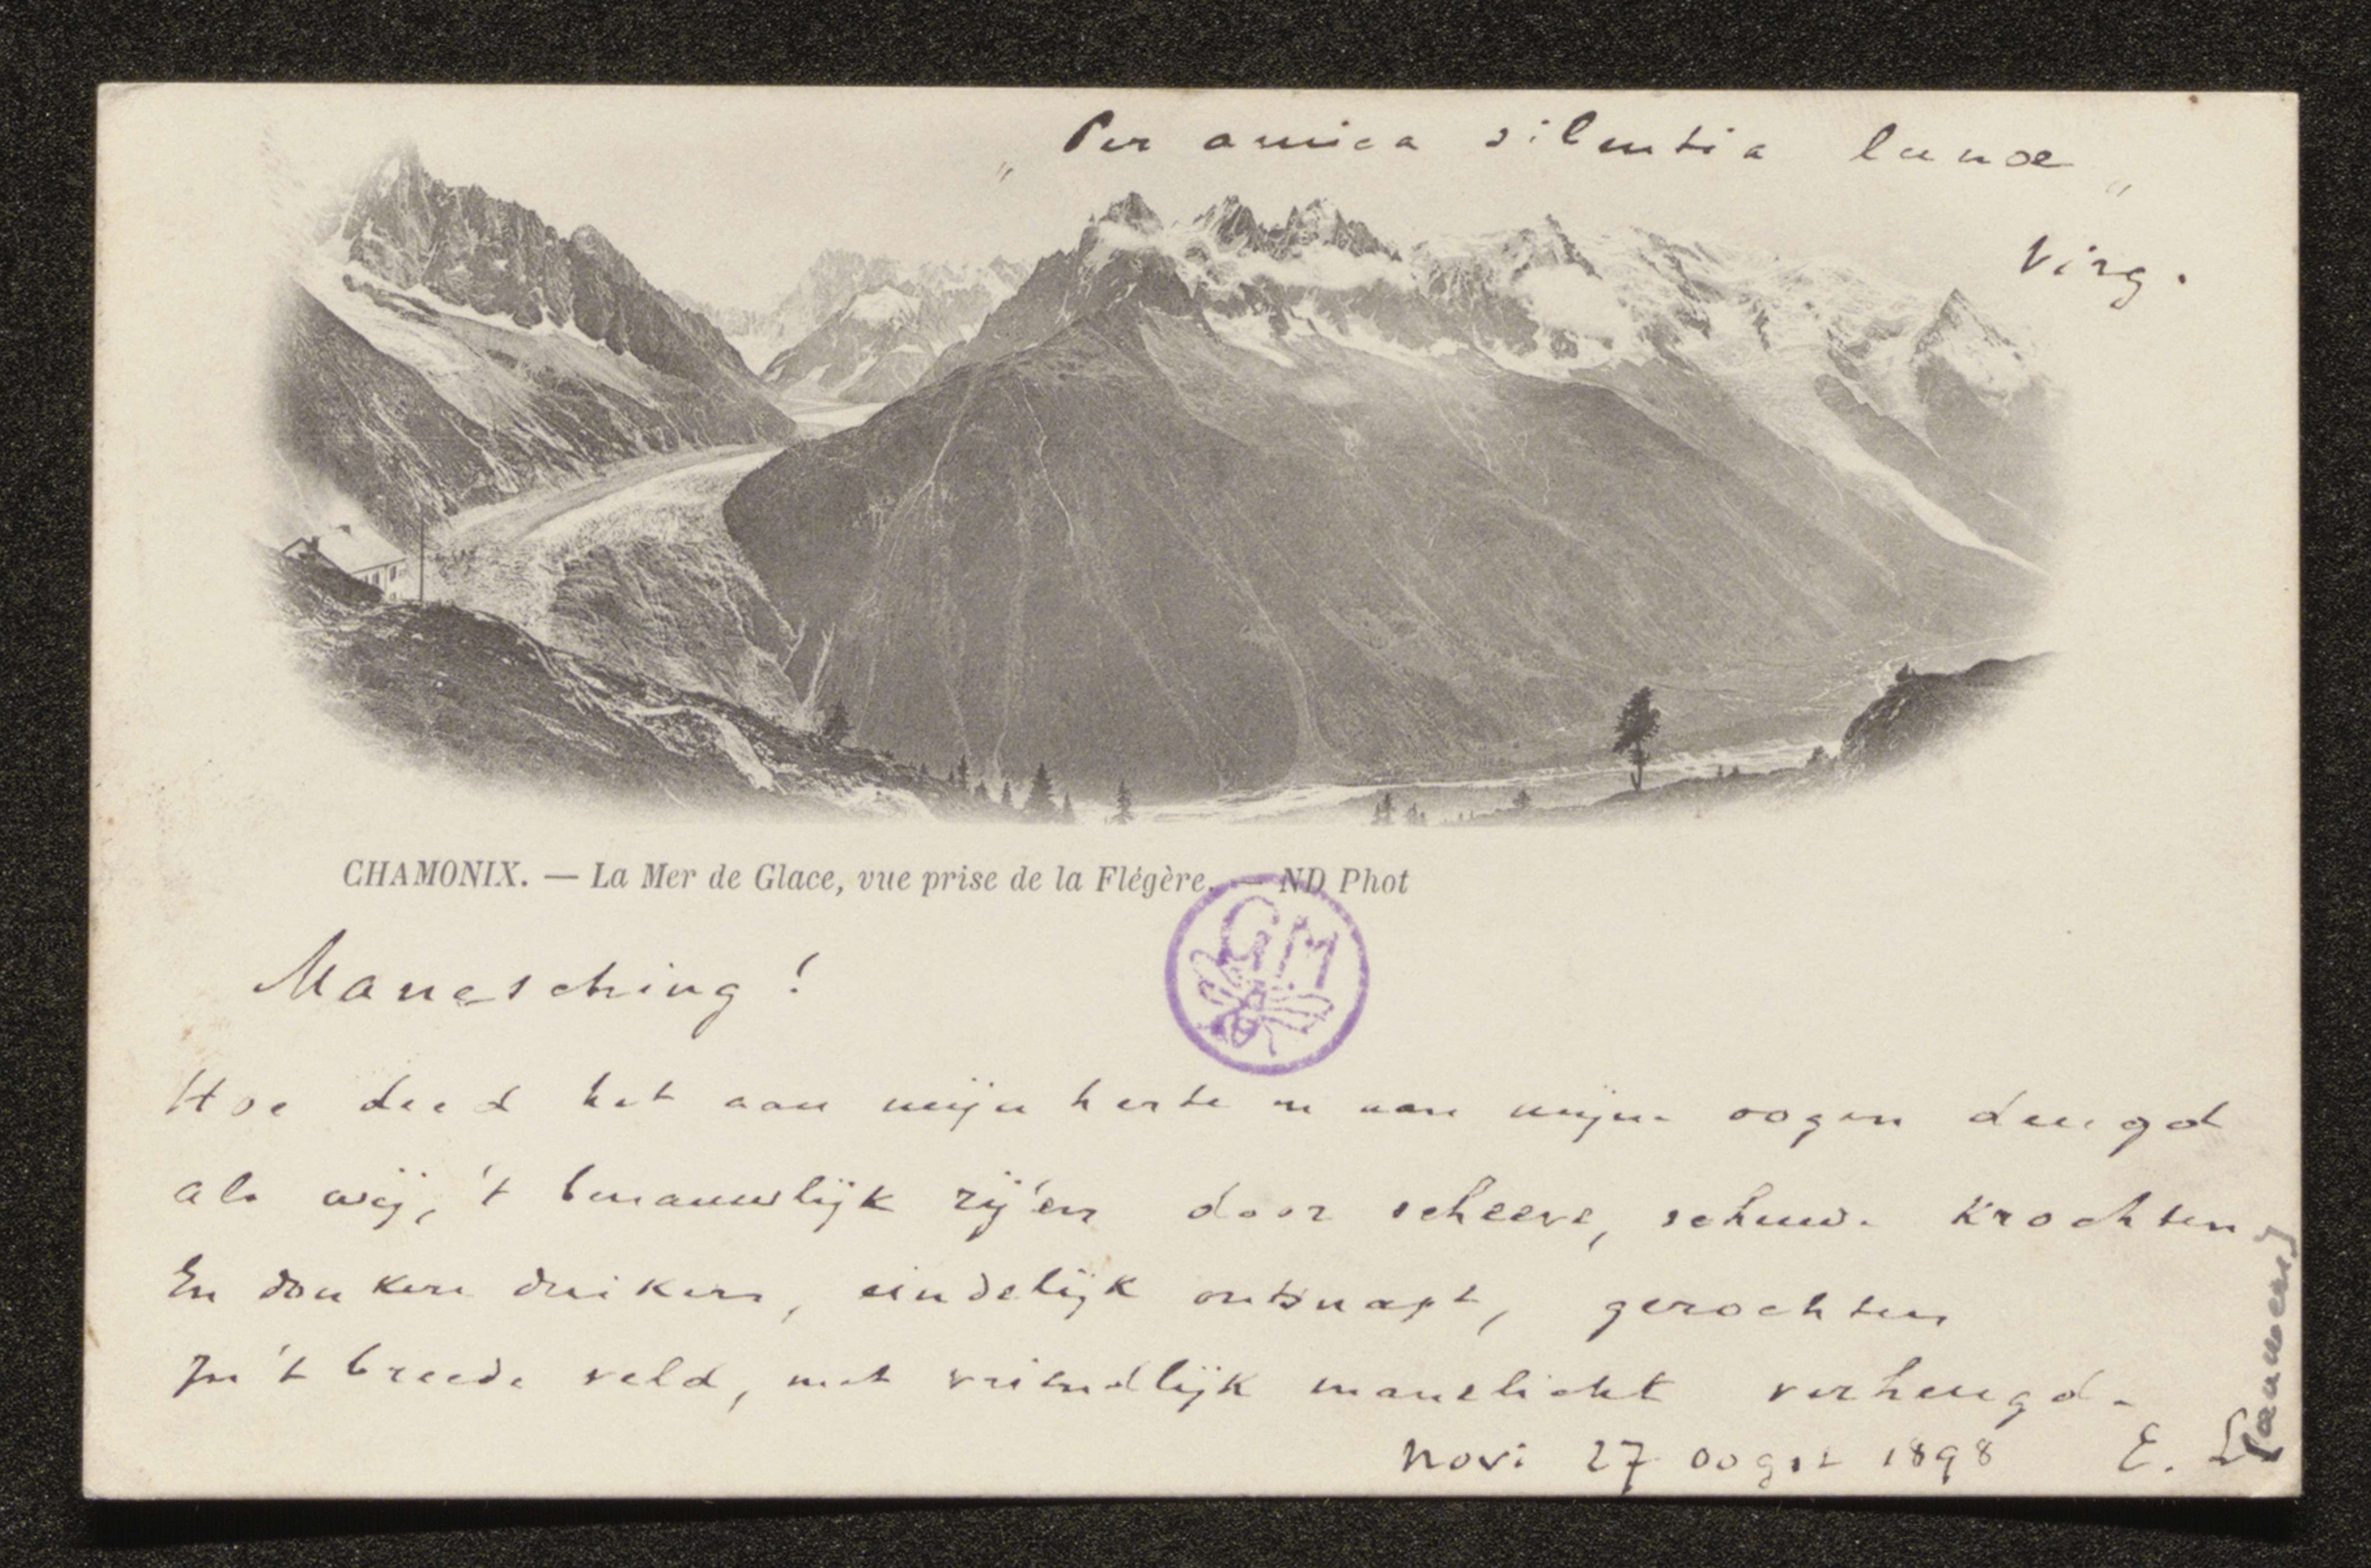 „ Per amica silentia lunae „
Virg.
CHAMONIX. — La Mer de Glace, vue prise de la Flégère. — ND Phot
GM
Manesching !
Hoe deed het aan mijn herte en aan mijne oogen deugd
als wij, 't benauwlijk rij'en door scheeve, schuwe krochten
En donkere duikers, eindelijk ontsnapt, gerochten
In 't breede veld, met vriendlijk manelicht verheugd.
Novi 27 oogst 1898 E. L
[auwers]